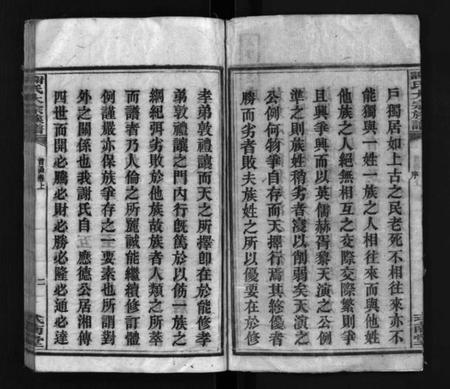 謝氏大宗族譜
序
戶獨居如上古之民老死不相往來亦不
能獨與一姓一族之人相往來而與他姓
他族之人絕無相互之交際交際繁則爭
且興爭興而以英儒赫胥黎天演之公例
準之則族姓稍劣者浸以削弱矣天演之
公例何物爭自存而天擇行焉其悠優者
勝而劣者敗夫族姓之所以優要在於修
孝弟敦禮讓而天之所擇即在於能修孝
弟敦禮讓之門內行旣篤於以飭一族之
綱紀弭劣敗於他族故族者人類之所萃
而譜者乃人倫之所麗誠能繼續修訂體
例謹嚴亦保族爭存之一要素也所謂對
外之關係也我謝氏自 應德公居湘傳
四世而開必騰必財必勝必隆必通必達
謝氏大宗族譜
首卷上
二